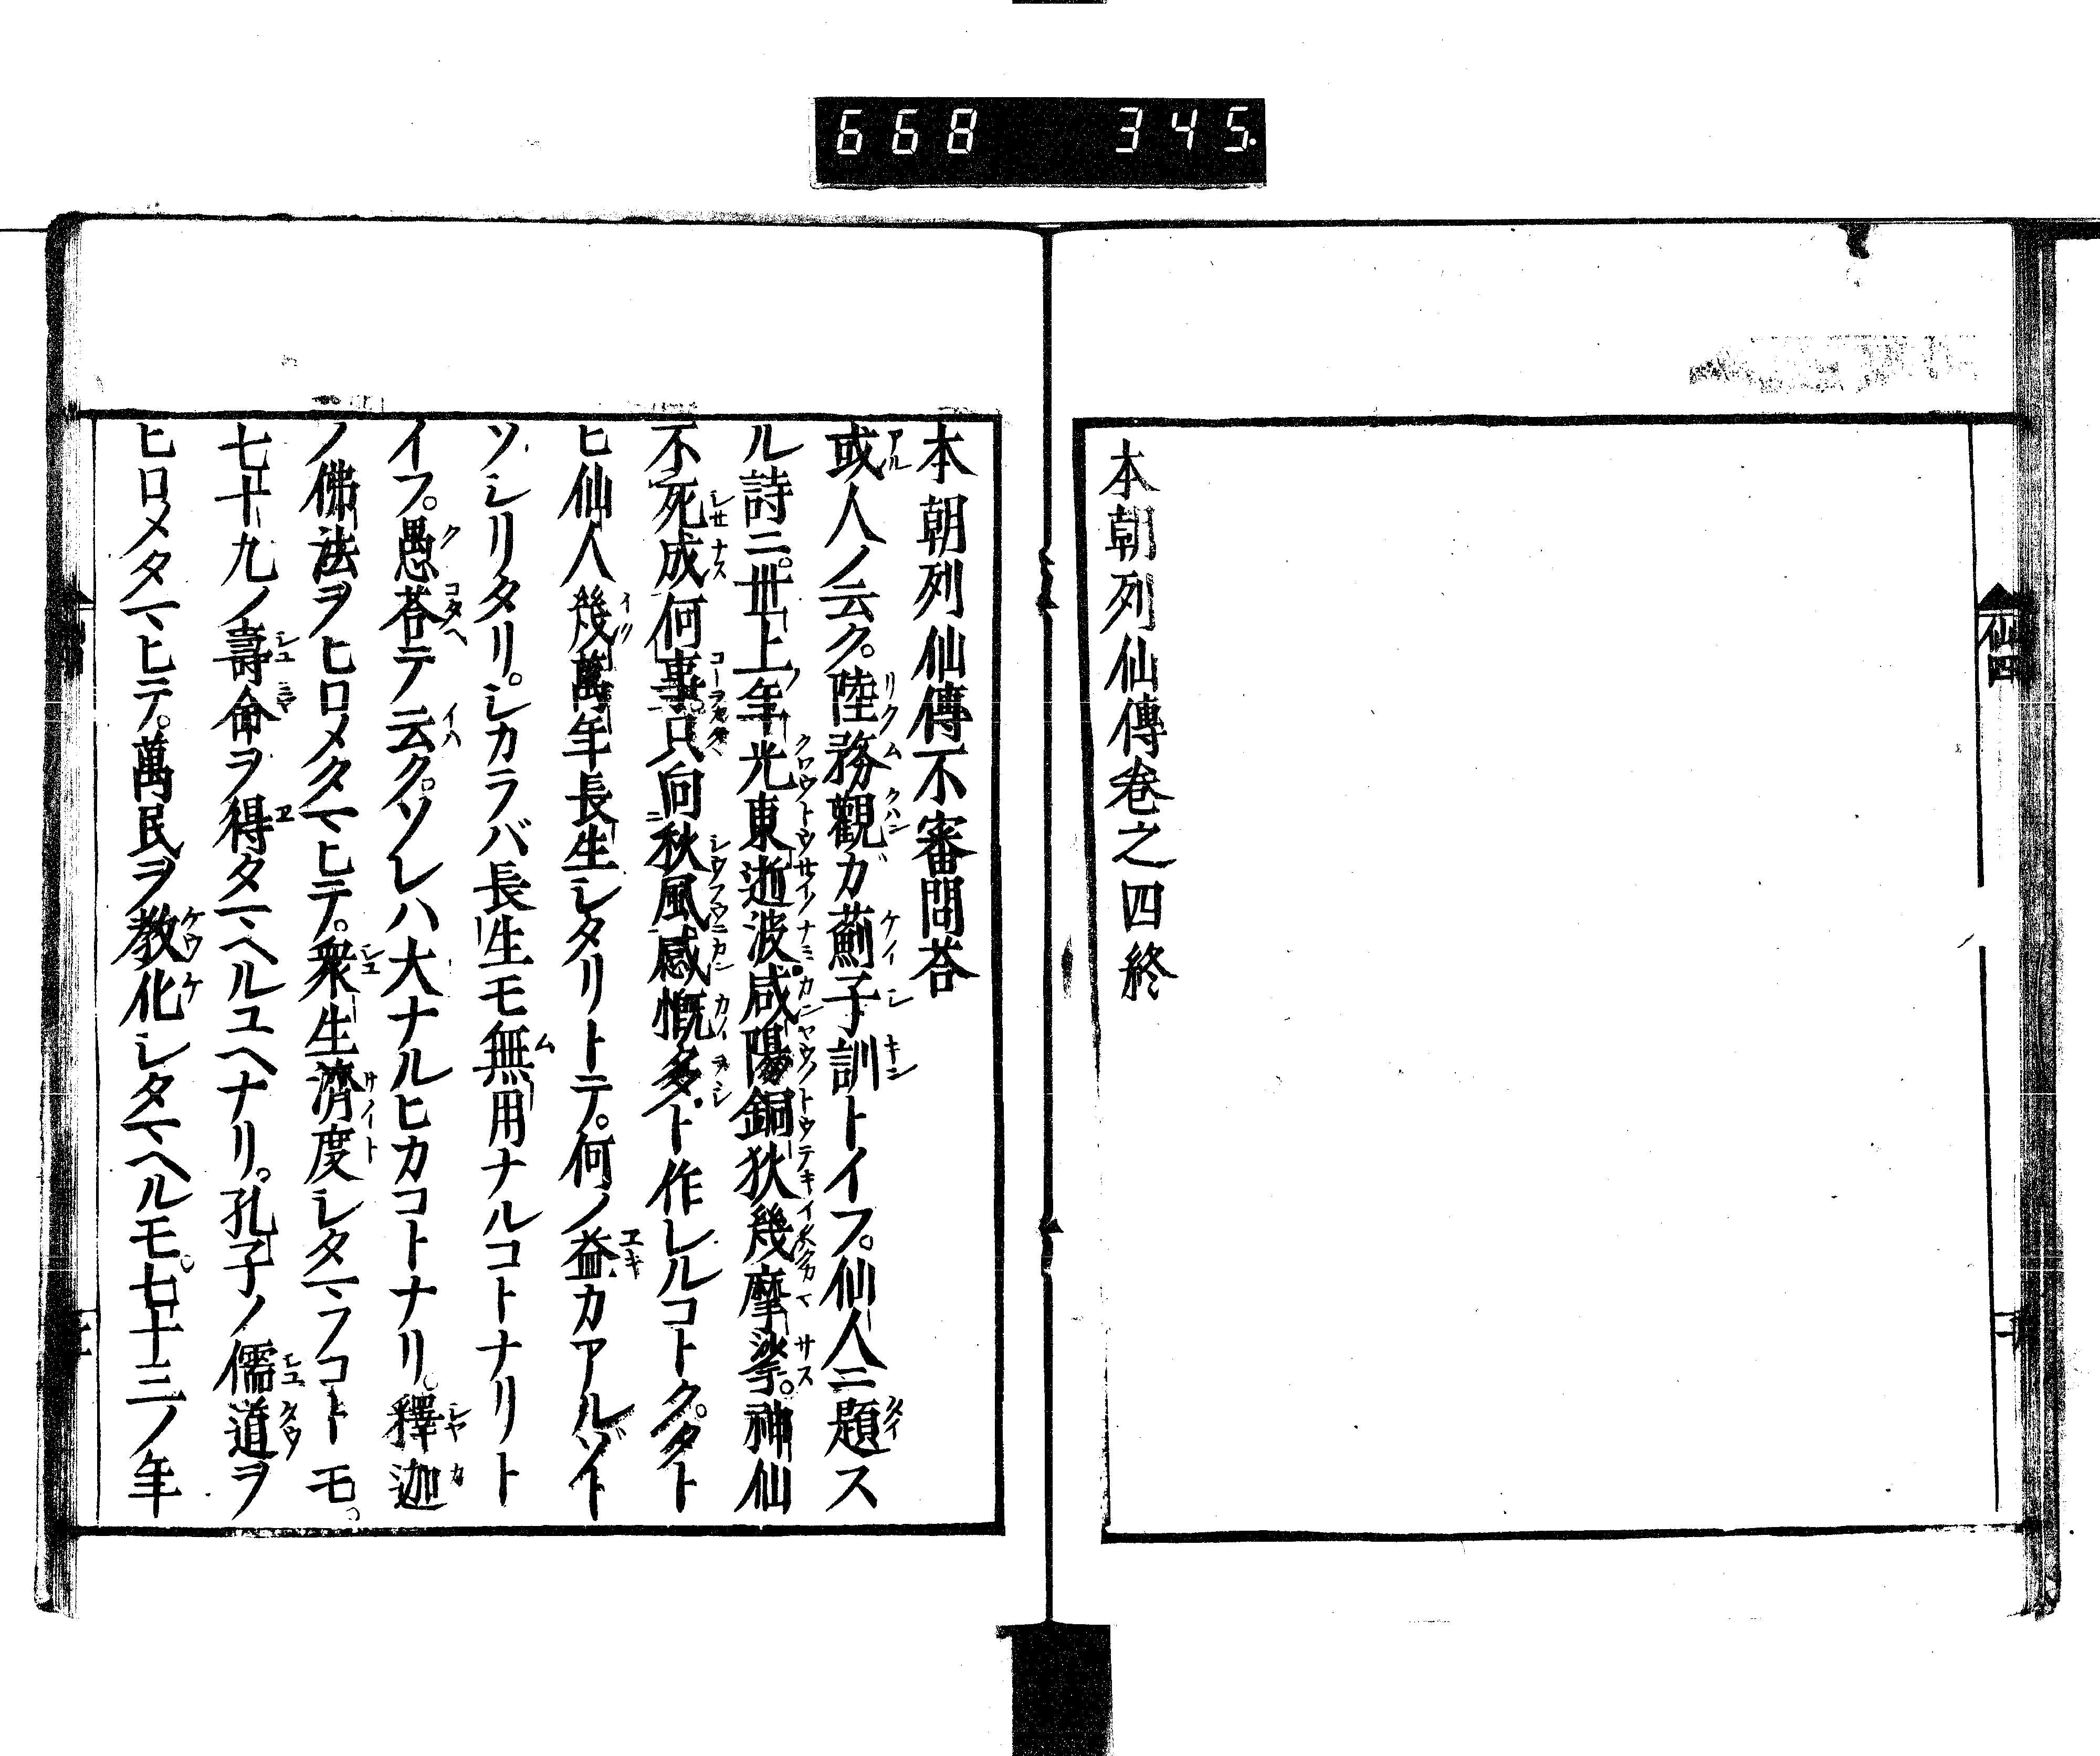 668 345
仙四
本朝列仙傳卷之四終
本朝列仙傳不審問荅
或人ノ云ク。陸務觀ガ薊子訓トイフ。仙人ニ題ス
ル詩ニ。丗上年光東逝波。咸陽銅狄幾摩挲。神仙
不死成何事。只向秋風感慨多ト作レルコトクタト
ヒ仙人幾萬年長生シタリトテ。何ノ益カアルゾト
ソシリタリ。シカラバ長生モ無用ナルコトナリト
イフ。愚荅テ云ク。ソレハ大ナルヒカコトナリ。釋迦
ノ佛法ヲヒロメタマヒテ。衆生濟度シタマフコトモ。
七十九ノ壽命ヲ得タマヘルユヘナリ。孔子ノ儒道ヲ
ヒロメタマヒテ。萬民ヲ教化シタマヘルモ。七十三ノ年